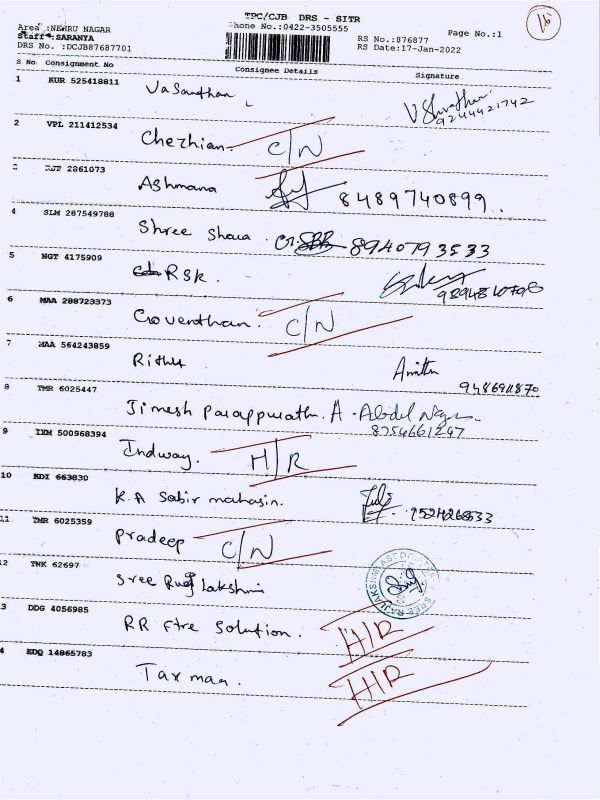 TPC/CJB DRS - SITR
Area :NEHRU NAGAR
Phone No.:0422-3505555
Page No.:1
16
Staff :SARANYA
RS No.:876877
DRS No. :DCJB87687701
RS Date:17-Jan-2022
S No Consignment No Consignee Details Signature
1 KUR 525418811 Vasandhan
9244421742
2 VPL 211412534 Chezhian C/N
3 RJP 2861073 Ashmana 8489740899.
4 SLM 287549788 Shree 8940793533
5 NGT 4175909 RSK.
6 MAA 288723373 Goventhan C/N
7 MAA 564243859
9486911870
8 TMR 6025447 Jimesh A. Abdul
8754661247
9 IXM 500968394 Indway. H/R
10 KDI 663830 K.A Sabir mahasin. 9524268533
11 TMR 6025359 Pradeep C/N
12 TNK 62697 Sree Lakshmi
13 DDG 4056985 RR Fire Solution. H/R
14 EDQ 14865783 Tax maa. H/R